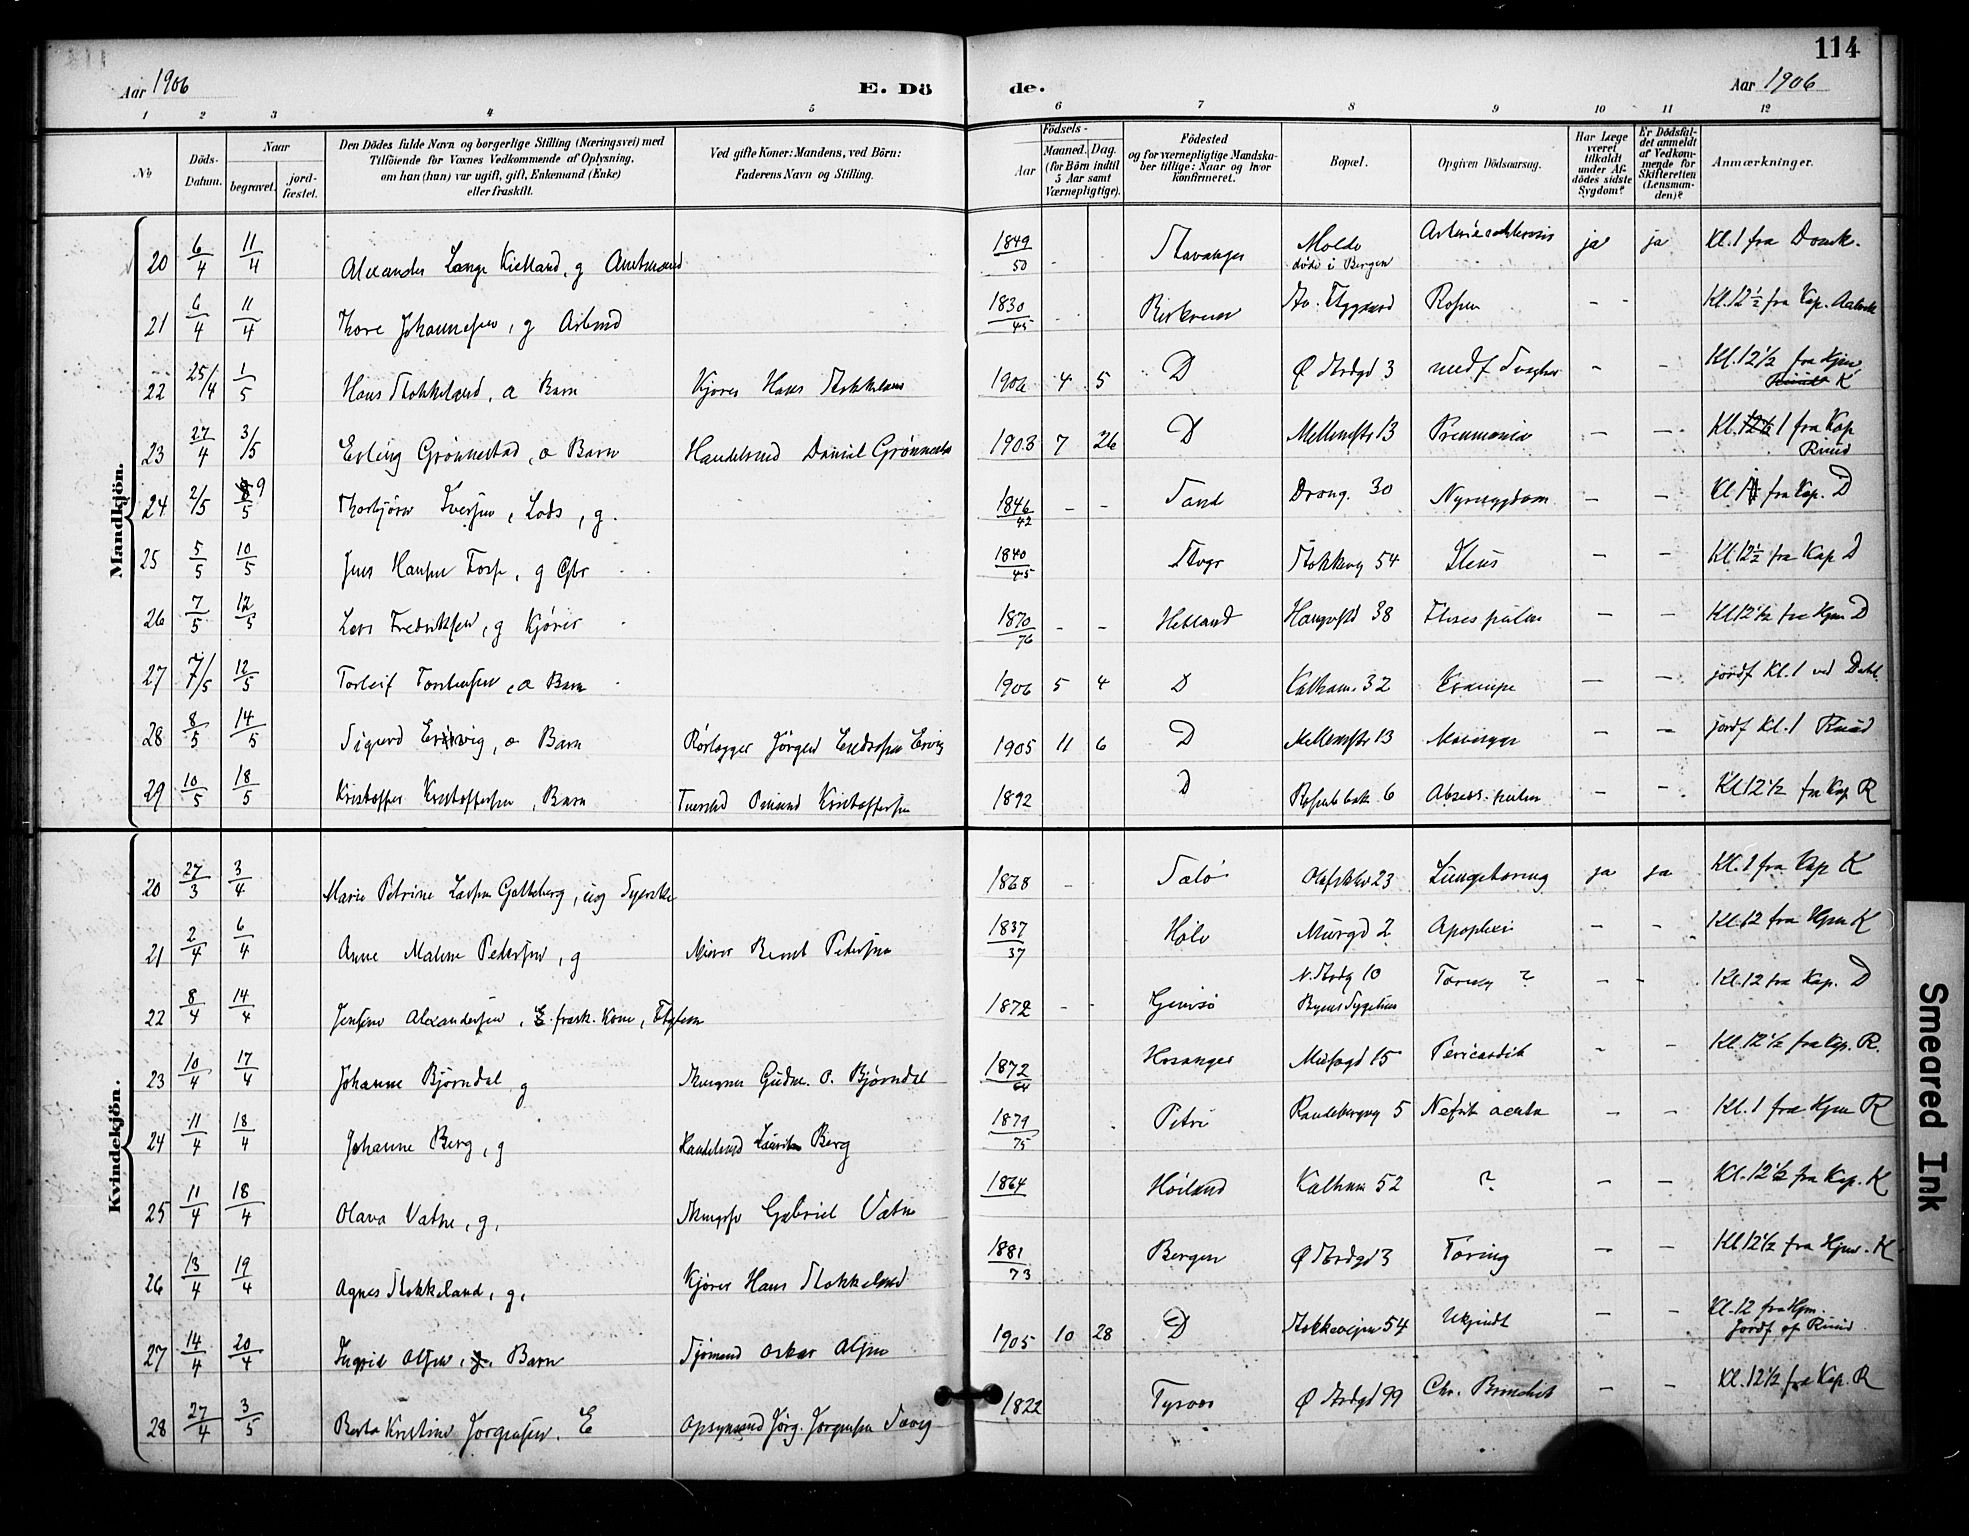 114
Aar 1906
E. Döde.
Aar 1906
1 2 3 4 5 6 7 8 9 10 11 12
No
Döds-Datum.
Naar
begravet.
jordfæstet.
Den Dödes fulde Navn og borgerlige Stilling (Næringsvei) med
Tilföiende for Voxnes Vedkommende af Oplysning,
om han (hun) var ugift, gift, Enkemand (Enke)
eller fraskilt.
Ved gifte Koner: Mandens, ved Börn:
Faderens Navn og Stilling.
Födsels-
Aar
Maaned. Dag.
(for Börn indtil
5 Aar samt
Værnepligtige).
Födested
og for værnepligtige Mandska-
ber tillige: Naar og hvor
konfirmeret.
Bopæl.
Opgiven Dödsaarsag.
Har Læge
været
tilkaldt
under Af-
dödes sidste
Sygdom?
Er Dödsfal-
det anmeldt
af Vedkom-
mende for
Skifteretten
(Lensman-
den)?
Anmærkninger.
Mandkjön.
20 6/4 11/4 Alexander Lange Kielland, g Amtmand 1849/50 - - Stavanger Molde døde i Bergen ja ja Kl. 1 fra Domk.
21 6/4 11/4 Thore Johannesen, g Arbmd 1830/45 - - Birkrem - - Kl. 12 1/2 fra Kap.
22 25/4 1/5 Hans Stokkeland, a Barn Kjører Hans Stokkeland 1906 4 5 D Ø Strdgd 3 medf Svaghed - - Kl. 12 1/2 fra Hjm K
23 27/4 3/5 Erling Grønnestad, a Barn Handelsmd Daniel Grønnestad 1903 7 26 D Mellemstr 13 Pneumonia - - Kl. 1 fra Kap Ruud
24 2/5 9/5 Thorbjørn Iversen, Lods, g. 1846/42 - - Sand 30 Nyresygdom - - Kl 1 fra Kap. D
25 5/5 10/5 Jens Hansen g 1840/45 Stvgr Stokkevg 54 Ileus - - Kl 12 1/2 fra Kap D
26 7/5 12/5 Lars Fredriksen, g Kjører 1870/76 - - Hetland 38 - - Kl 12 1/2 fra Hjm D
27 7/5 12/5 Torleif Torstensen, a Barn 1906 5 4 D Kalham. 32 Krampe - - jordf Kl. 1 ved Dahl.
28 8/5 14/5 Sigurd Ervig, a Barn Rørlægger Jörgen Endresen Ervig 1905 11 6 D Mellemstr 13 - - jordf Kl. 1 Ruud
29 10/5 18/5 Kristoffer Kristoffersen, Barn Omund Kristoffersen 1892 D 6 Absess. pulm - - Kl 12 1/2 fra Kap R
Kvindekjön.
20 27/3 3/4 Marie Petrine Larsen ug Syerske 1868 - Talö Olafsklev 23 Lungetæring ja ja Kl. 1 fra Kap K
21 2/4 6/4 Anne Malene Pedersen, g Murer Berent Pedersen 1837/37 Høle Murgd 2 Apoplexi - - Kl. 12 fra Hjm K
22 8/4 14/4 Jensine Alexandersen, frask. Kone, 1872 - - N. Strdg 10 Byens Sygehus Tæring ? - - Kl. 12 fra Kap. D
23 10/4 17/4 Johanne Bjørndal g Bjørndal 1872/64 Hosanger 15 Pericardit - - Kl. 12 1/2 fra Kap. R.
24 11/4 18/4 Johanne Berg, g Handelsmd Lauritz Berg 1879/75 Petri Randebergvg 5 Nefrit acuta - - Kl. 1 fra Hjm R
25 11/4 18/4 Olava Vatne, g, Gabriel Vatne 1864 Høiland Kalham 52 ? - - Kl. 12 1/2 fra Kap. K
26 13/4 19/4 Agnes Stokkeland, g, Kjører Hans Stokkeland 1881/73 Bergen Ø Strdgd 3 Tæring - - Kl 12 1/2 fra Hjm. K
27 14/4 20/4 Ingrid Olsen, Barn Sjømand Oskar Olsen 1905 10 28 D Stokkeveien 54 Ukjendt - - Kl. 12 fra Hjm. Jordf af Ruud
28 27/4 3/5 Berta Kristine Jørgensen. E Opsynsmd Jörg. Jørgensen Sævig 1822 Tysvær Ø Strdgd 99 Chr. Bronchit - - Kl. 12 1/2 fra Kap. R
Smeared Ink